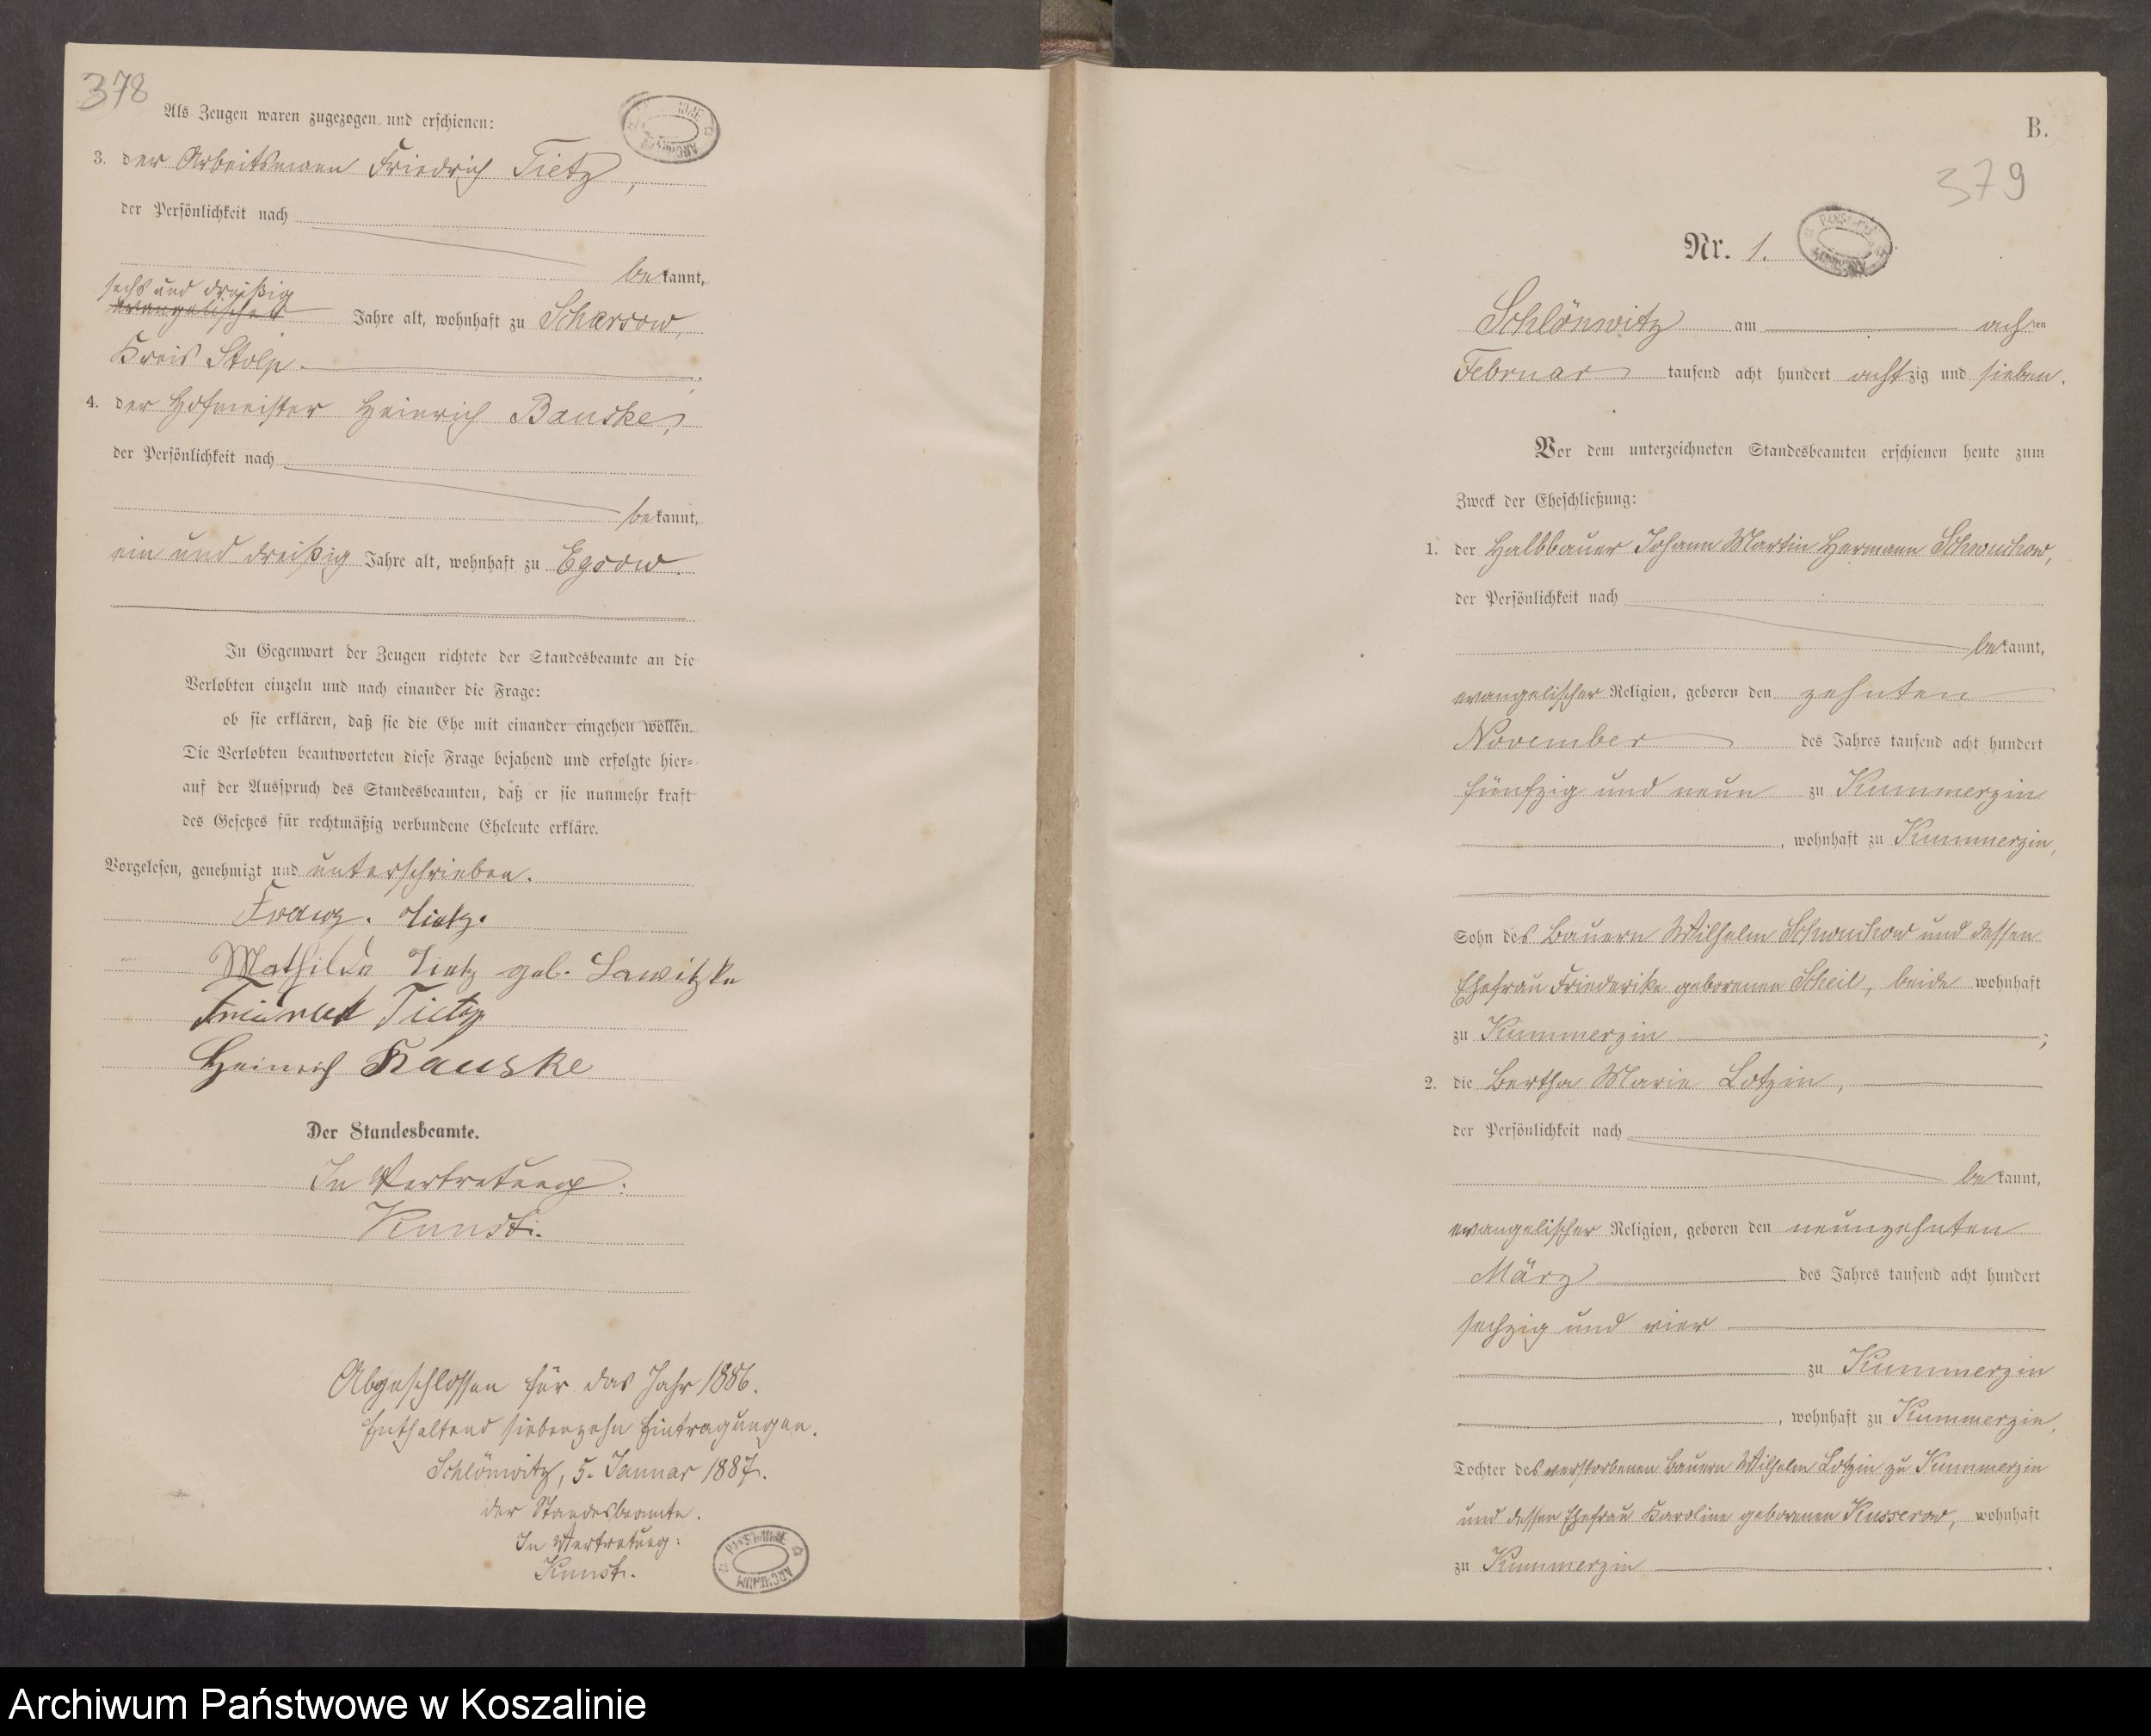 378
Als Zeugen waren zugezogen und erschienen:
3. der Arbeitsmann Friedrich Tietz,
der Persönlichkeit nach
bekannt,
sechs und dreißig
evangelischer Jahre alt, wohnhaft zu Scharsow,
Kreis Stolp.
4. der Hofmeister Heinrich Bauske,
der Persönlichkeit nach
bekannt,
ein und dreißig Jahre alt, wohnhaft zu Egsow.
In Gegenwart der Zeugen richtete der Standesbeamte an die
Verlobten einzeln und nach einander die Frage:
ob sie erklären, daß sie die Ehe mit einander eingehen wollen.
Die Verlobten beantworteten diese Frage bejahend und erfolgte hier-
auf der Ausspruch des Standesbeamten, daß er sie nunmehr kraft
des Gesetzes für rechtmäßig verbundene Eheleute erkläre.
Vorgelesen, genehmigt und unterschrieben.
Franz. Tietz.
Mathilde Tietz geb. Lawitzke
Tietz
Heinrich Bauske
Der Standesbeamte.
In Vertretung:
Kunst.
Abgeschlossen für das Jahr 1886.
Enthaltend siebenzehn Eintragungen.
Schlönwitz, 5. Januar 1887.
der Standesbeamte.
In Vertretung:
Kunst.
PAŃSTWOWE ARCHIWUM
B.
379
Nr. 1.
Schlönwitz am achten
Februar tausend acht hundert achtzig und sieben.
Vor dem unterzeichneten Standesbeamten erschienen heute zum
Zweck der Eheschließung:
1. der Halbbauer Johann Martin Hermann Schwuchow,
der Persönlichkeit nach
bekannt,
evangelischer Religion, geboren den zehnten
November des Jahres tausend acht hundert
fünfzig und neun zu Kummerzin
, wohnhaft zu Kummerzin,
Sohn des Bauern Wilhelm Schwuchow und dessen
Ehefrau Friederike geborenen Scheil, beide wohnhaft
zu Kummerzin ;
2. die Bertha Marie Lotzin,
der Persönlichkeit nach
bekannt,
evangelischer Religion, geboren den neunzehnten
März des Jahres tausend acht hundert
sechzig und vier
zu Kummerzin
, wohnhaft zu Kummerzin,
Tochter des verstorbenen Bauern Wilhelm Lotzin zu Kummerzin
und dessen Ehefrau Karoline geborenen Kusserow, wohnhaft
zu Kummerzin .
Archiwum Państwowe w Koszalinie